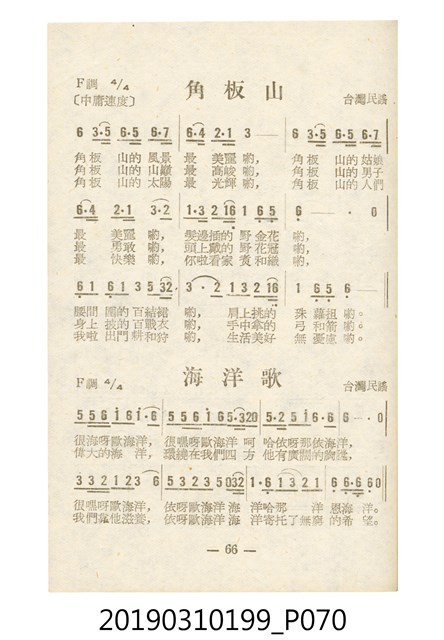 F調 4/4
角板山
〔中庸速度〕
台灣民謠
6 3·5 6·5 6·7 6·4 2·1 3 — 6 3·5 6·5 6·7
角板 山的 風景 最 美麗 喲, 角板 山的 姑娘
角板 山的 山嶺 最 高峻 喲, 角板 山的 男子
角板 山的 太陽 最 光輝 喲, 角板 山的 人們
6·4 2·1 3·2 1·3 2 16 1 6 5 6 — · 0
最 美麗 喲, 髮邊插的 野金花 喲,
最 勇敢 喲, 頭上戴的 野花冠 喲,
最 快樂 喲, 你啦看家 煮和織 喲,
6 1 6 1 3 5 32 3 · 2 1 3 2 16 1 6 5 6 — · 0
腰間 圍的 百結裙 喲, 肩上挑的 珠蘿祖 喲。
身上 披的 百戰衣 喲, 手中拿的 弓和箭 喲。
我啦 出門 耕和狩 喲, 生活美好 無憂慮 喲。
海洋歌
F調 4/4
台灣民謠
5 5 6 1 6 1·6 5 5 6 1 6 5·320 5·2 5 1 6·6 6 — · 0
很海呀歐海洋, 很嘿呀歐海洋 呵 哈依呀那依海洋,
偉大的海 洋, 環繞在我們四 方 他有廣闊的胸膛,
3 3 2 1 2 3 6 5 3 2 3 5 032 1·6 1 3 2 1 6·6·6 60
很嘿呀歐海洋, 依呀歐海洋 海 洋哈那 洋 恩海洋。
我們靠他滋養, 依呀歐海洋 海 洋寄托了無窮 的希望。
— 66 —
20190310199_P070